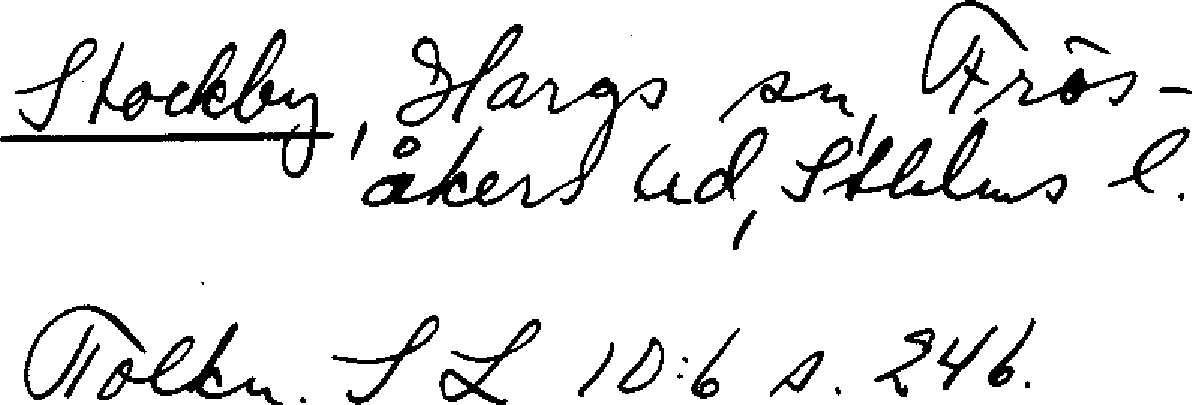 Stockby, Hargs sn, Frös-
åkers hd, Sthlms l.
Tolkn. SL 10:6 s. 246.